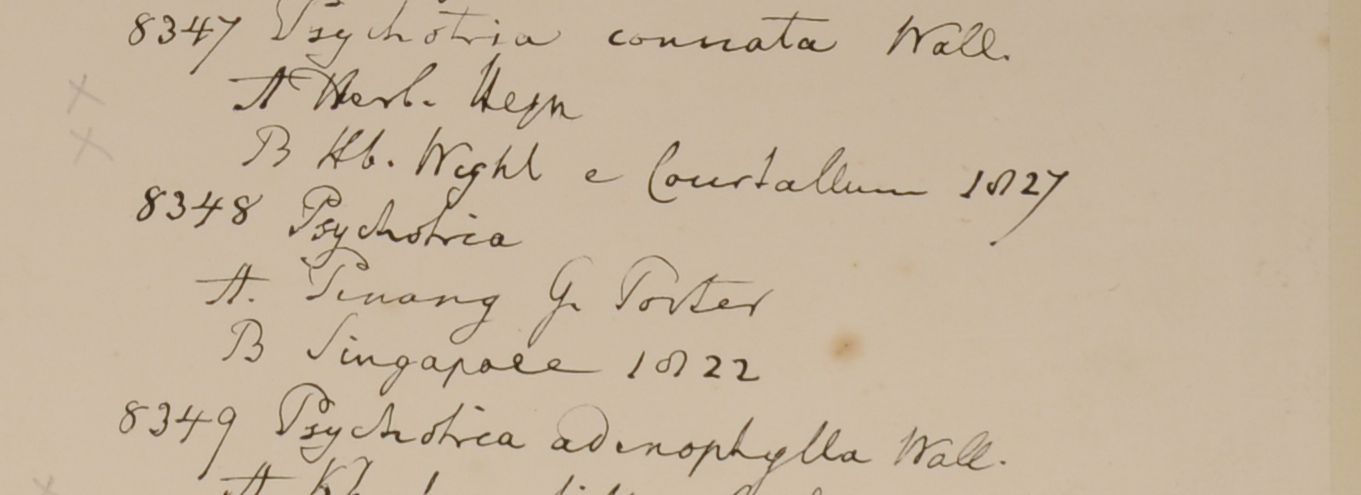 8347 Psychotria connata Wall.
A Herb. Heyn
B Hb. Wight e Courtallum 1827
8348 Psychotria
A. Pinang G. Porter
B Singapore 1822
8349 Psychotria adenophylla Wall.
A